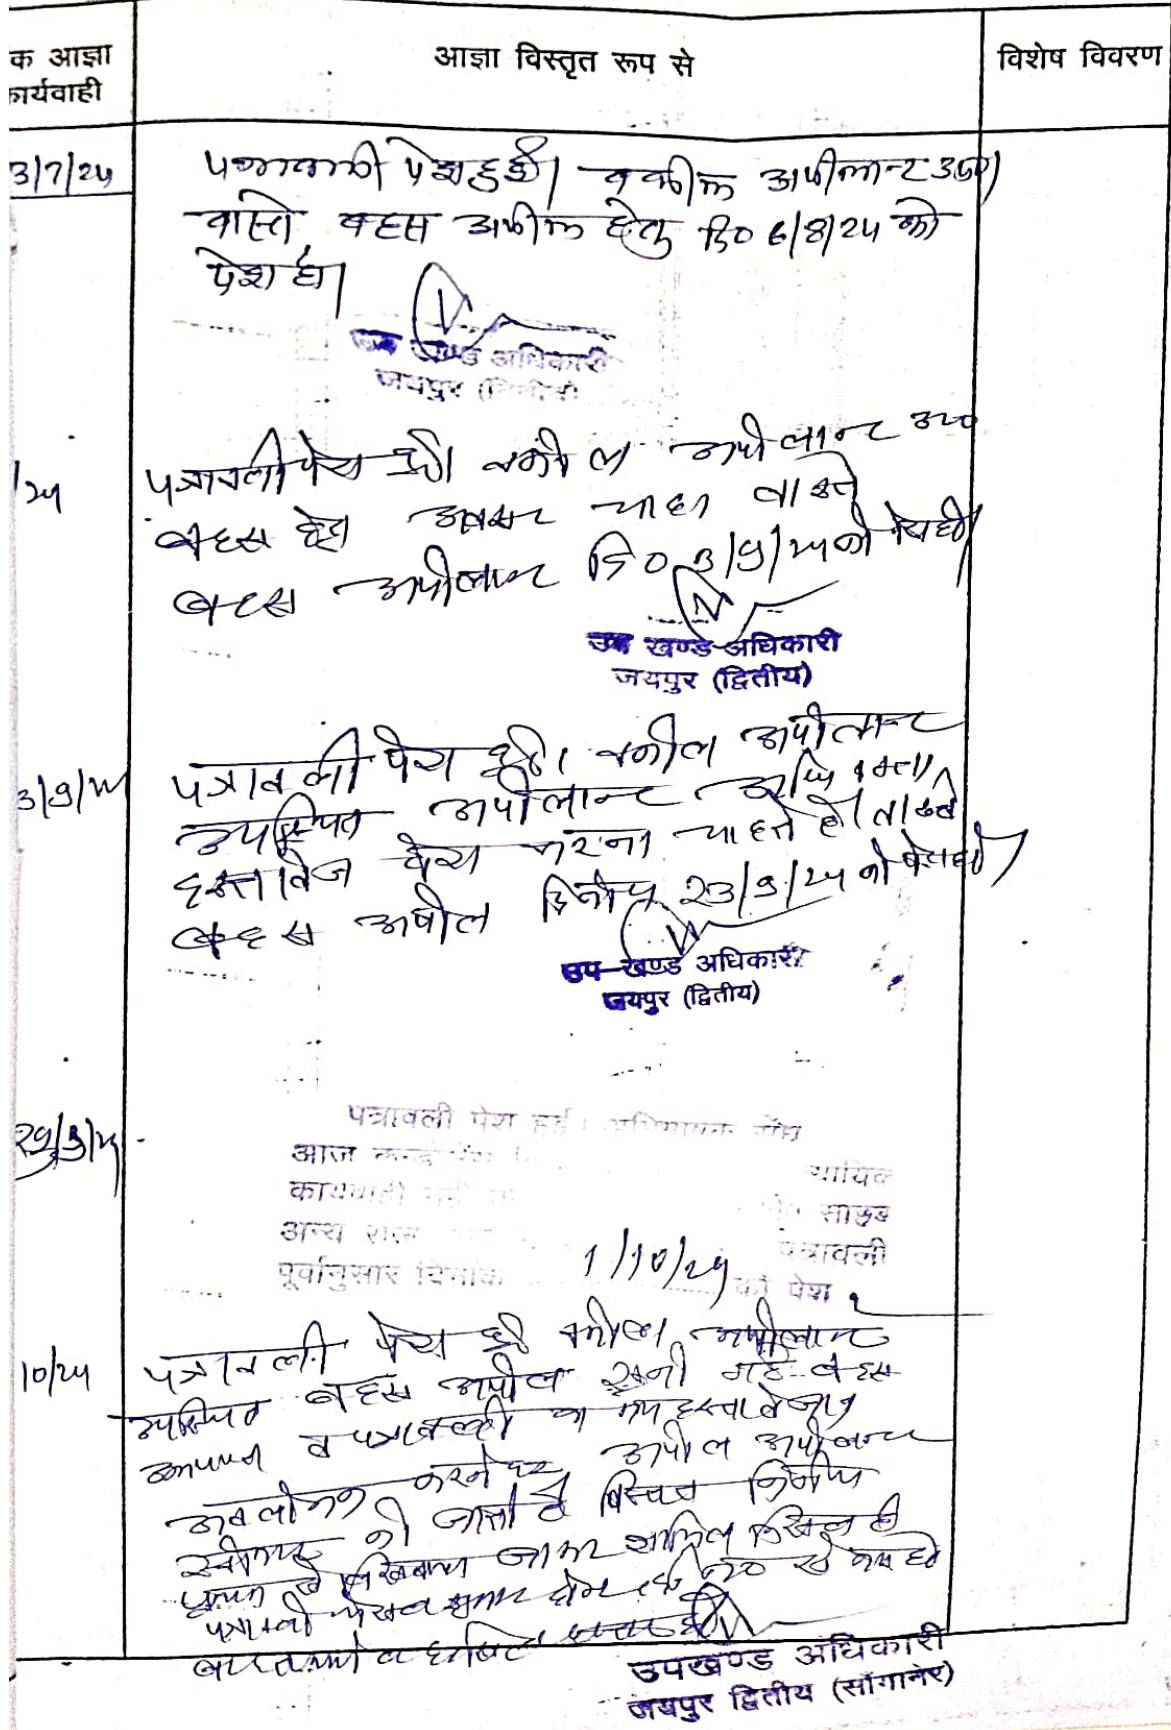 क आज्ञा
कार्यवाही
आज्ञा विस्तृत रूप से
विशेष विवरण
3/7/24
पत्रावली पेश हुई। वकील अपीलान्ट उप०।
वास्ते बहस अपील हेतु दि० 6/8/24 को
पेश हो।
उप खण्ड अधिकारी
जयपुर (द्वितीय)
/24
पत्रावली पेश हुई। वकील अपीलान्ट उप०
बहस हेतु अवसर चाहा वास्ते
बहस अपीलान्ट दि० 3/9/24 को पेश हो।
उप खण्ड अधिकारी
जयपुर (द्वितीय)
3/9/24
पत्रावली पेश हुई। वकील अपीलान्ट
उपस्थित अपीलान्ट अधिवक्ता
दस्तावेज पेश करना चाहते है। वास्ते
बहस अपील दिनांक 23/9/24 को पेश हो।
उप खण्ड अधिकारी
जयपुर (द्वितीय)
पत्रावली पेश हुई।
आज
न्यायिक
कार्यवाही नहीं
साहब
अन्य राज
पत्रावली
पूर्वानुसार दिनांक 1/10/24 को पेश
10/24
पत्रावली पेश हुई वकील अपीलान्ट
उपस्थित बहस अपील सुनी गई बहस
व पत्रावली दस्तावेजात
अवलोकन करने पर अपील अपीलान्ट
की जाती है विस्तृत निर्णय
पृथक से लिखवाया जाकर शामिल मिसल हो
पत्रावली फैसल शुमार होकर से कम हो
उपखण्ड अधिकारी
जयपुर द्वितीय (सांगानेर)